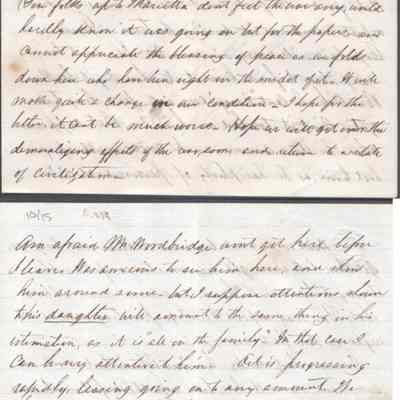 Our folks up to Marietta don't feel the war any, would
hardly know it was going on but for the papers and
cannot appreciate the blessing of peace as we folks
down here who have been right in the midst of it. It will
make quite a change in our condition. I hope for the
better it can't be much worse. Hope we will get over the
demoralizing effects of the war soon and return to a state
of civilization
10/15
Am afraid Mr Woodbridge won't get here before
I leave. Was anxious to see him here, and show
him around some. but I suppose attentions shown
to his daughter will amount to the same thing in his
estimation, as it is "all in the family." In that case I
can be very attentive to him. Oil is progressing
rapidly, leasing going on to any amount. The